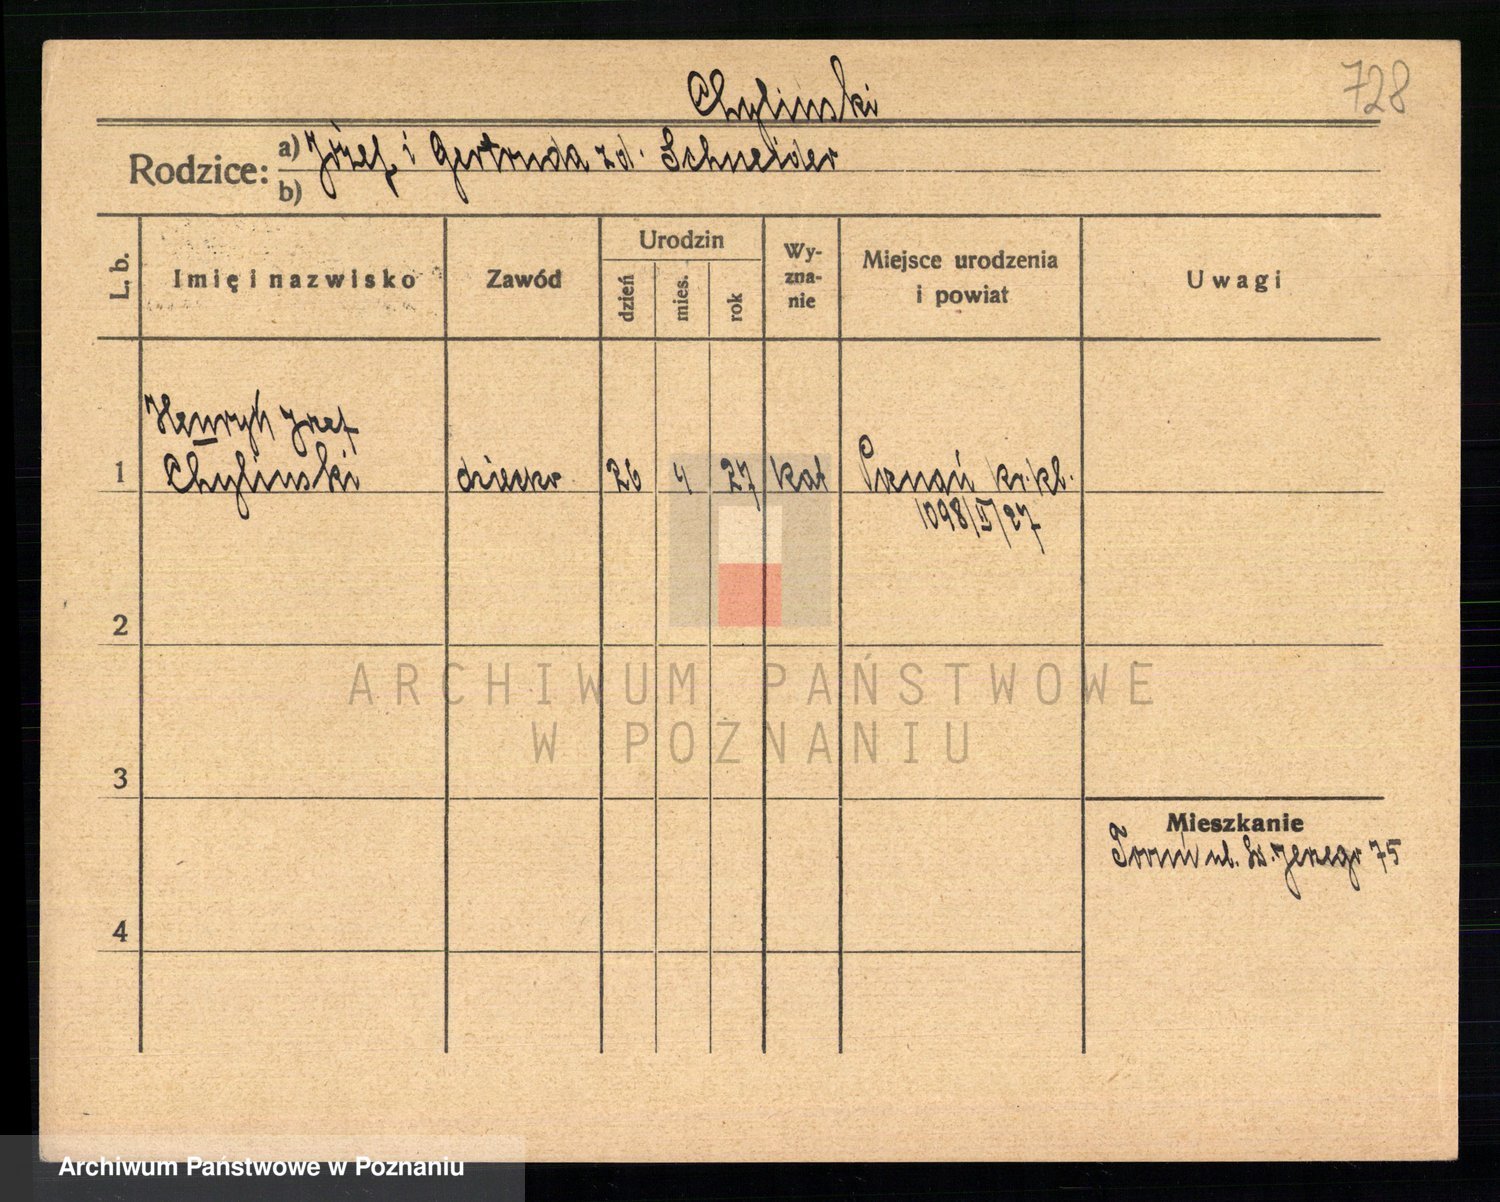 728
Chylinski
Rodzice: a) Józef i Gertruda z d. Schneider
b)
L. b.
Imię i nazwisko
Zawód
Urodzin
dzień
mies.
rok
Wy-
zna-
nie
Miejsce urodzenia
i powiat
Uwagi
Henryk Józef
1 Chylinski dziecko 26 4 27 kat Poznań kr. kl.
1098/II/27
2
ARCHIWUM PAŃSTWOWE
W POZNANIU
3
Mieszkanie
Toruń ul. Św. Jerzego 75
4
Archiwum Państwowe w Poznaniu